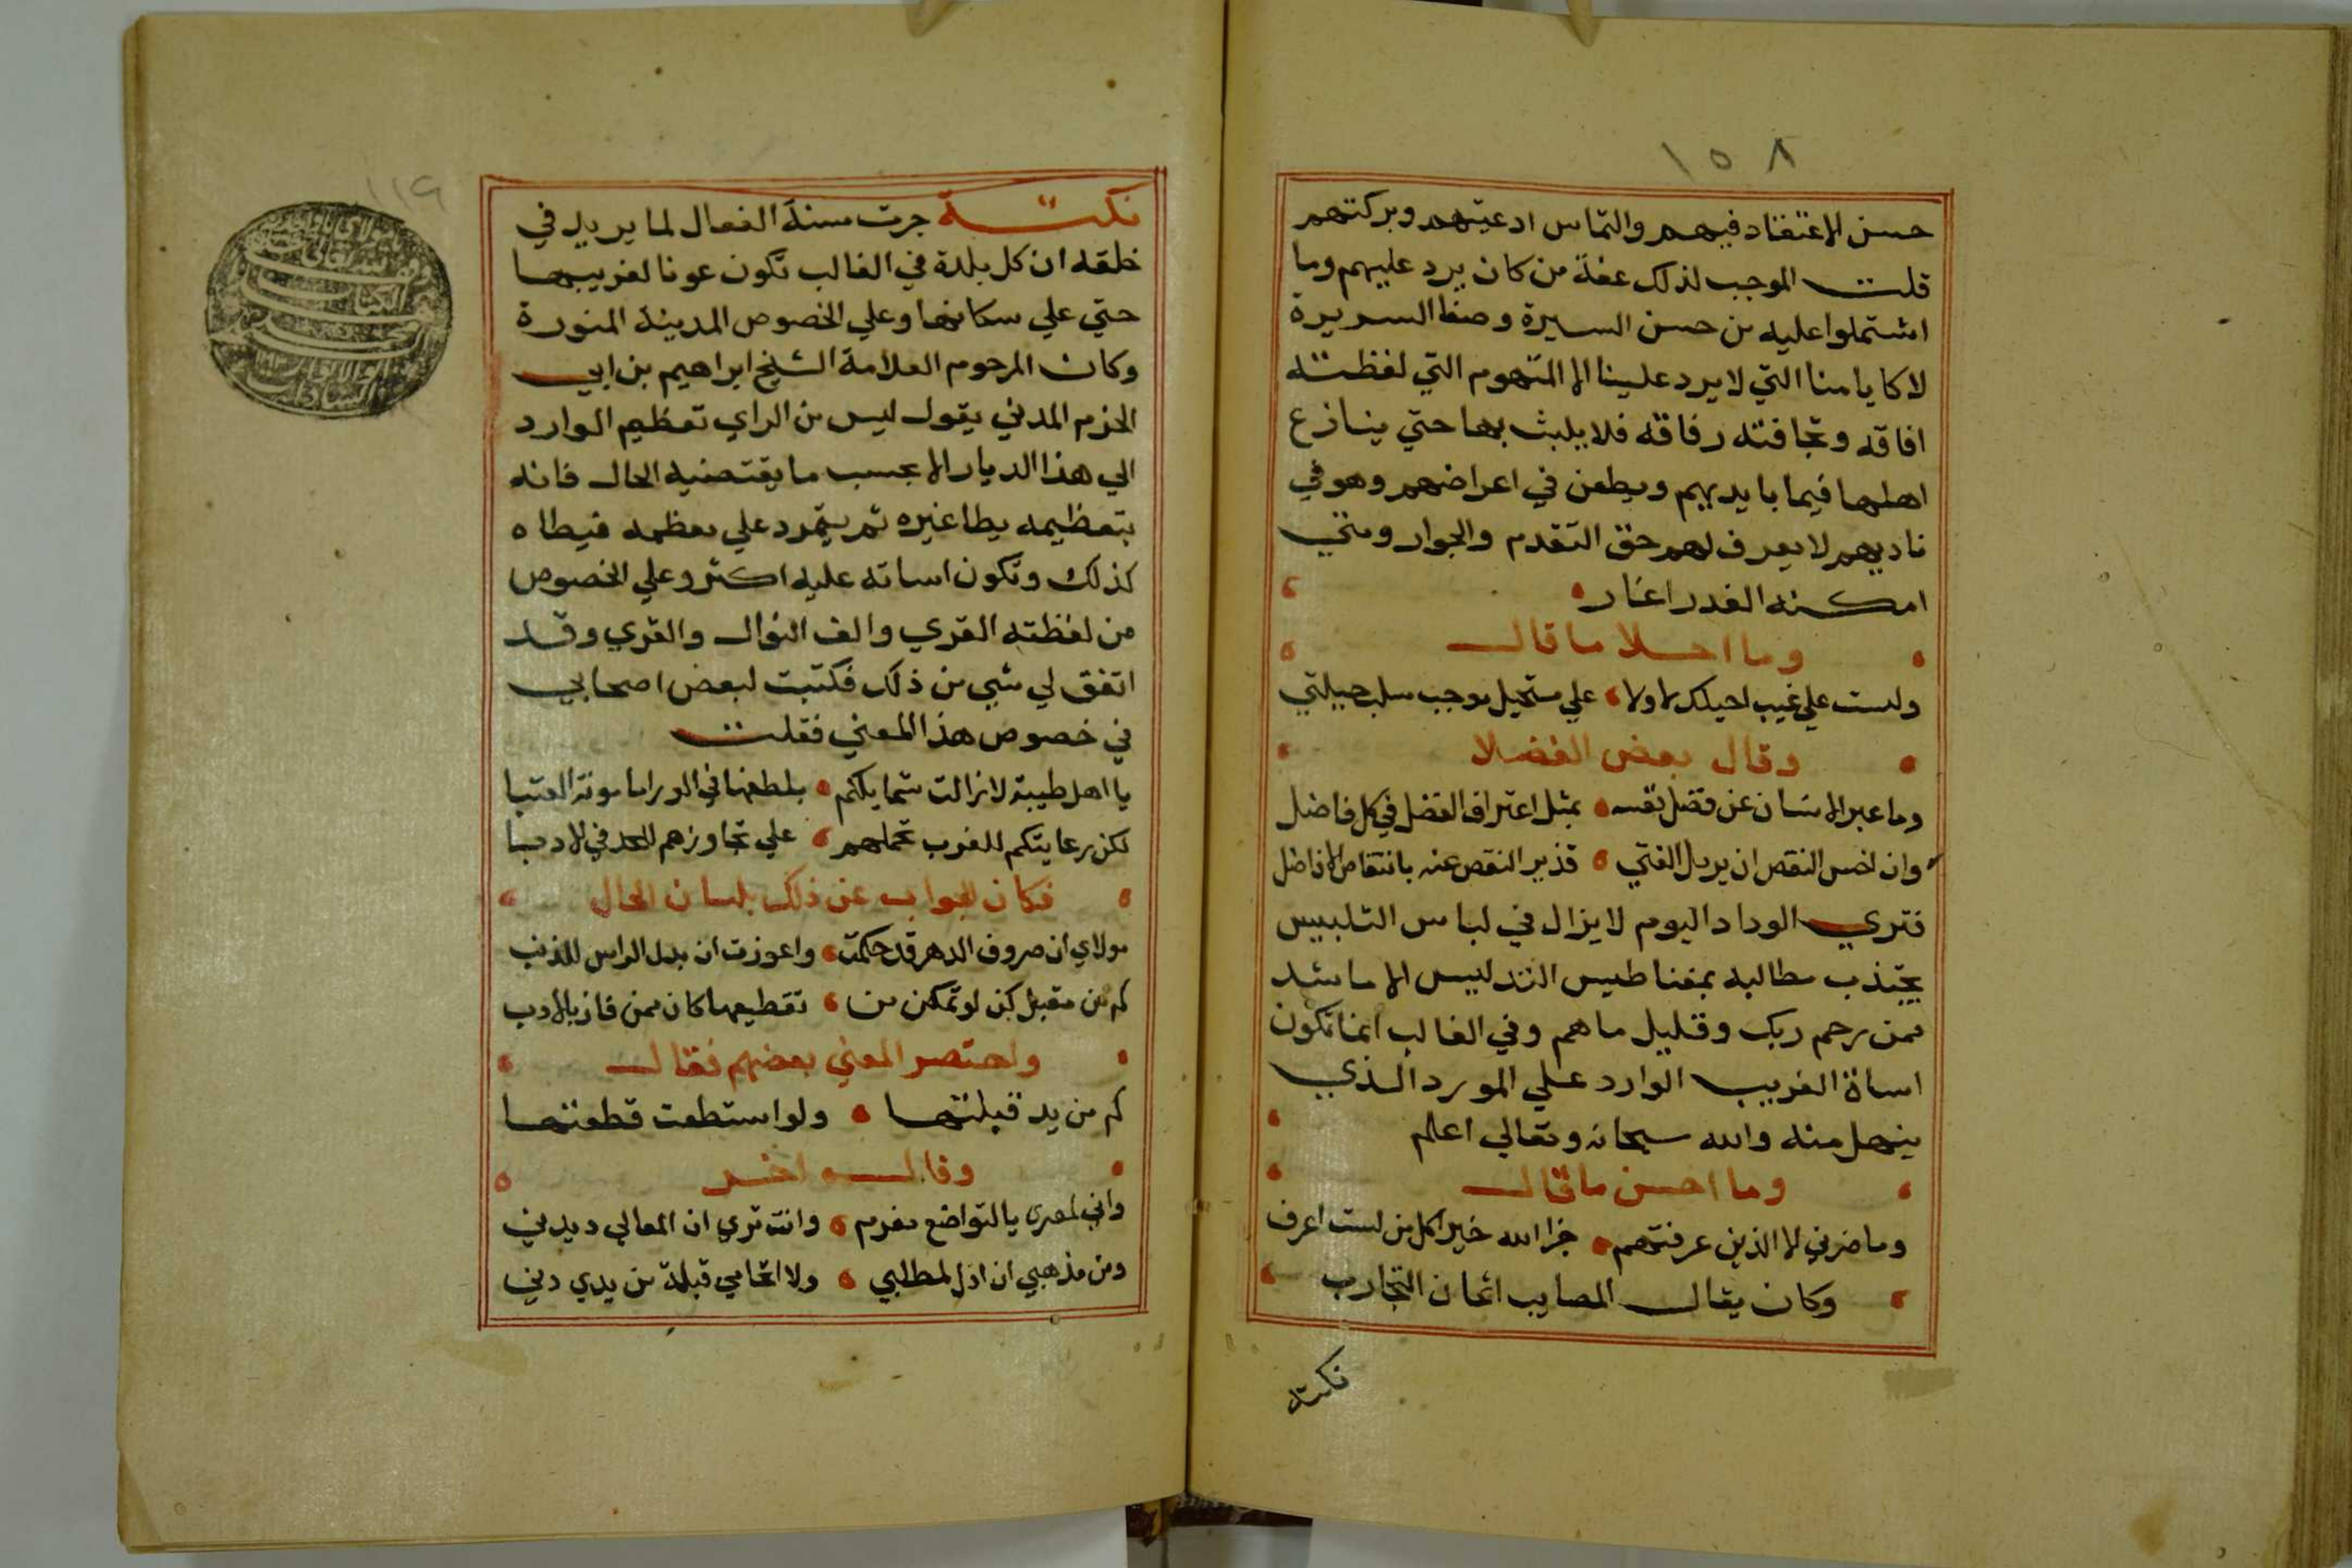 ١٥٨
حسن الاعتقاد فيهم والتماس ادعيتهم وبركتهم
قلت الموجب لذلك عفة من كان يرد عليهم وما
اشتملوا عليه من حسن السيرة وصفا السريرة
لا كايامنا التي لا يرد علينا الا المتهوم التي لفظته
افاقه وتجافته رفاقه فلا يلبث بها حتي ينازع
اهلها فيما بايديهم ويطعن في اعراضهم وهو في
ناديهم لا يعرف لهم حق التقدم والجوار ومتي
امكنه الغدر اغار
وما احلا ما قال
ولست علي غيب احيلك لا ولا علي مستحيل موجب سلب حيلتي
وقال بعض الفضلا
وما عبر الانسان عن فضل نفسه بمثل اعتراف الفضل في كل فاضل
وان اخس النقص ان يرمل الفتي قذير النقص عنه بانتقاص الافاضل
فتري الوداد اليوم لا يزال في لباس التلبيس
يجتذب مطالبه بمغناطيس التدليس الا ما شد
ممن رحم ربك وقليل ما هم وفي الغالب انما تكون
اساة الغريب الوارد علي المورد الذي
ينهل منه والله سبحانه وتعالي اعلم
وما احسن ما قال
وما ضرني الا الذين عرفتهم جزا الله خيرا كل من لست اعرف
وكان يقال المصايب اثمان التجارب
نكتة
١١٩
نكتة جرت سنة الفعال لما يريد في
خلقه ان كل بلدة في الغالب تكون عونا لغريبها
حتي علي سكانها وعلي الخصوص المدينة المنورة
وكان المرحوم العلامة الشيخ ابراهيم بن ابي
الحزم المدني يقول ليس من الراي تعظيم الوارد
الي هذا الديار الا بحسب ما يقتضيه الحال فانه
بتعظيمه يطا غيره ثم يتمرد علي معظمه فيطاه
كذلك وتكون اساته عليه اكثر وعلي الخصوص
من لفظته القري والف النوال والقري وقد
اتفق لي شي من ذلك فكتبت لبعض اصحابي
في خصوص هذا المعني فقلت
يا اهل طيبة لا زالت شمايلكم بلطفها في الورا مامونة العتبا
لكن رعايتكم للغرب تحملهم علي تجاوزهم للحد في الادبا
فكان الجواب عن ذلك بلسان الحال
مولاي ان صروف الدهر قد حكمت واعوزت ان يدل الراس للذنب
كم من مقبل كف لو تمكن من تقطيعها كان ممن فاز بالادب
واختصر المعني بعضهم فقال
كم من يد قبلتها ولو استطعت قطعتها
وقال اخر
واني لمعري بالتواضع مغرم وانت تري ان المعالي ديدني
ومن مذهبي ان اذل لمطلبي ولا اتحامي قبلة من يدي دني